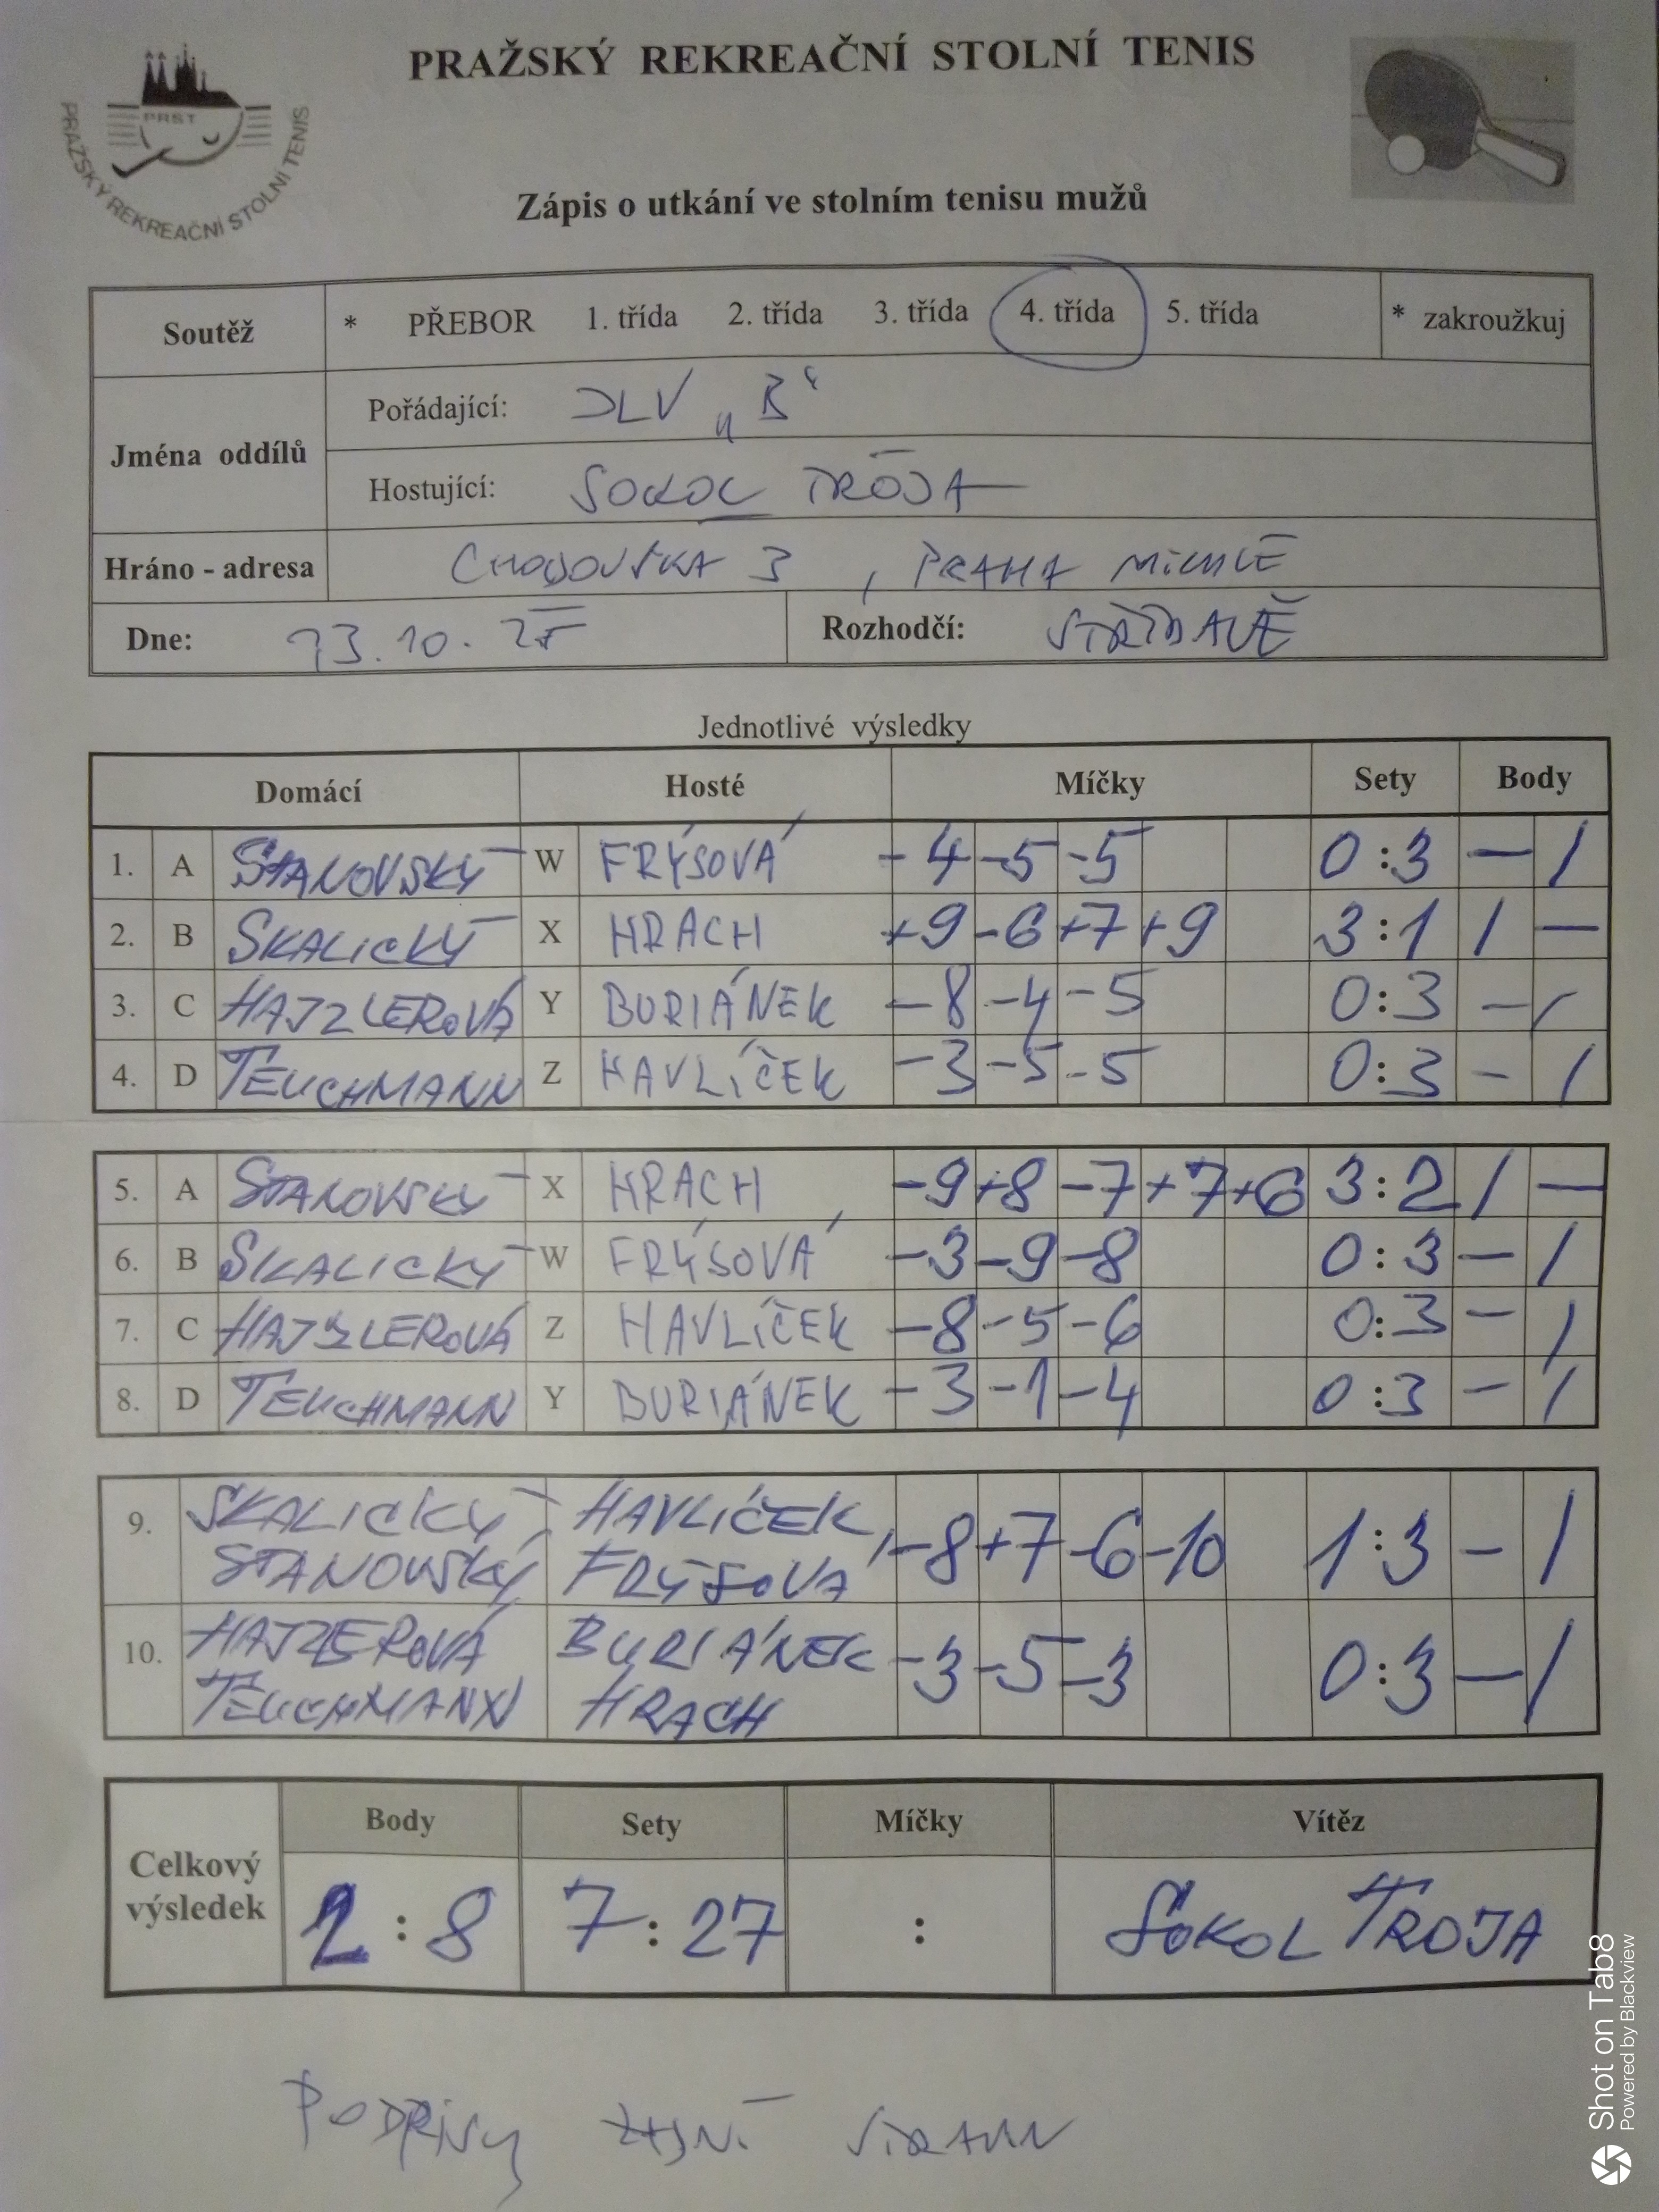 PRAŽSKÝ REKREAČNÍ STOLNÍ TENIS
PRST
PRAŽSKÝ REKREAČNÍ STOLNÍ TENIS
Zápis o utkání ve stolním tenisu mužů
Soutěž * PŘEBOR 1. třída 2. třída 3. třída 4. třída 5. třída * zakroužkuj
Jména oddílů
Pořádající: DLV „B“
Hostující: SOKOL TRÓJA
Hráno - adresa CHODOVSKÁ 3, PRAHA MICHLE
Dne: 23.10.25 Rozhodčí: STŘÍDAVĚ
Jednotlivé výsledky
Domácí Hosté Míčky Sety Body
1. A STANOVSKÝ W FRÝSOVÁ -4 -5 -5 0:3 — 1
2. B SKALICKÝ X HRACH +9 -6 +7 +9 3:1 1 —
3. C HAJZLEROVÁ Y BURIÁNEK -8 -4 -5 0:3 — 1
4. D TEUCHMANN Z HAVLÍČEK -3 -5 -5 0:3 - 1
5. A STANOVSKÝ X HRACH -9 +8 -7 +7 +6 3:2 1 —
6. B SKALICKÝ W FRÝSOVÁ -3 -9 -8 0:3 — 1
7. C HAJZLEROVÁ Z HAVLÍČEK -8 -5 -6 0:3 - 1
8. D TEUCHMANN Y BURIÁNEK -3 -1 -4 0:3 - 1
9. SKALICKÝ HAVLÍČEK -8 +7 -6 -10 1:3 - 1
STANOVSKÝ FRÝSOVÁ
10. HAJZLEROVÁ BURIÁNEK -3 -5 -3 0:3 — 1
TEUCHMANN HRACH
Celkový výsledek
Body Sety Míčky Vítěz
2:8 7:27 : SOKOL TROJA
PODPISY ZADNÍ STRANA
Shot on Tab8
Powered by Blackview